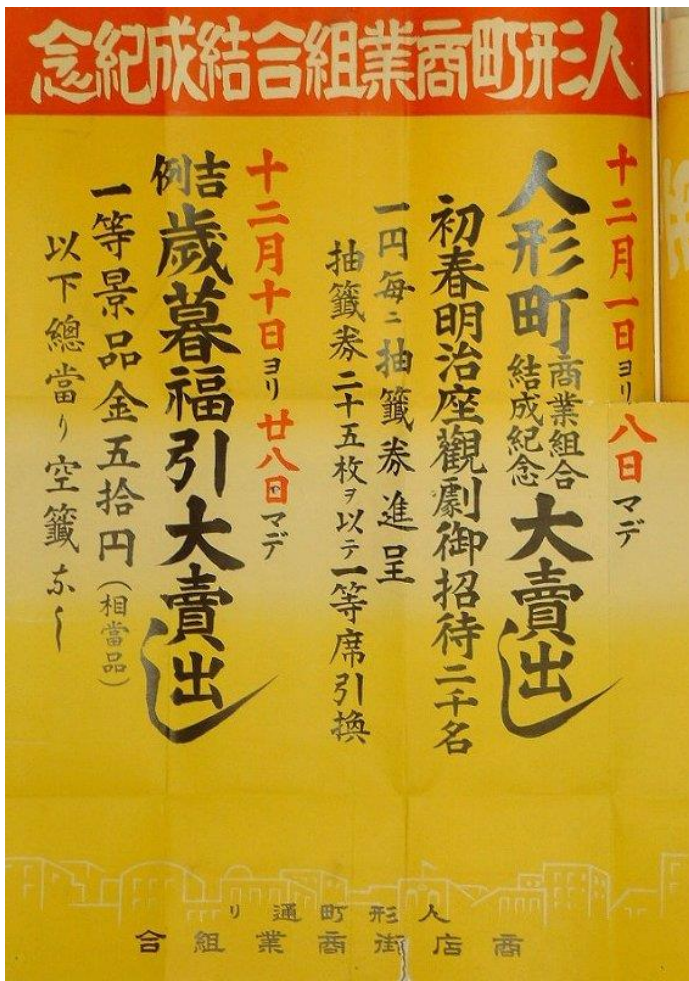 人形町商業組合結成紀念
十二月一日ヨリ八日マデ
人形町商業組合結成紀念大賣出し
初春明治座觀劇御招待二千名
一円每ニ抽籤券進呈
抽籤券二十五枚ヲ以テ一等席引換
十二月十日ヨリ廿八日マデ
吉例歲暮福引大賣出し
一等景品金五拾円(相當品)
以下總當り空籤なし
人形町通り
商店街商業組合